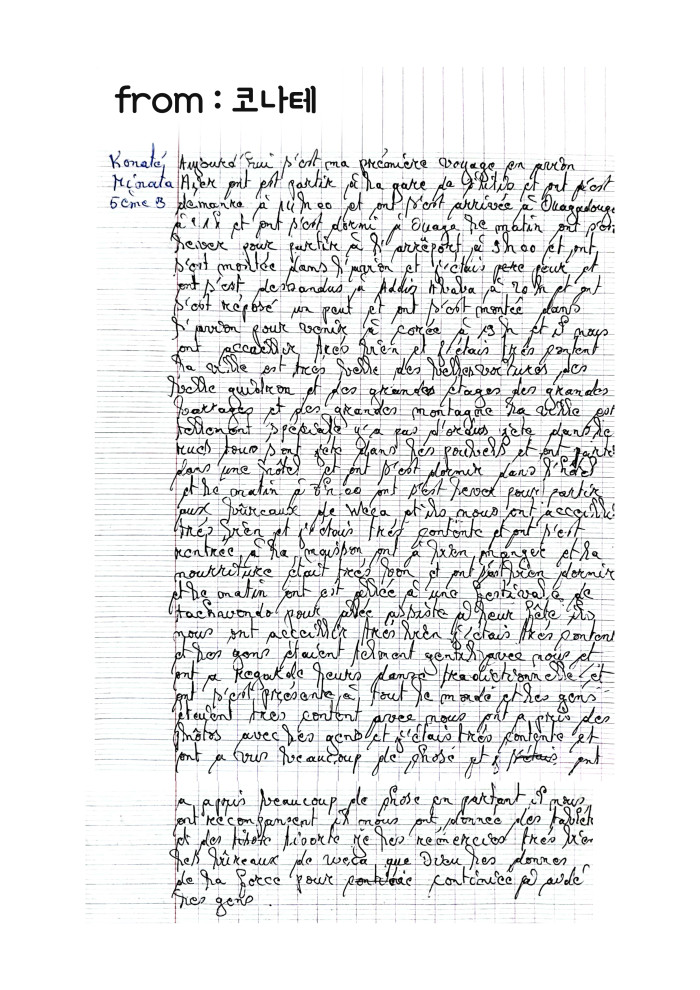 from : 코나테
Konaté Aujourd'hui s'est ma prémière voyage en avion
Minata Aier ont est partir à la gare de et ont s'est
5ème B démarra à 14h00 et ont s'est arrivée à Ouagadougou
à 18 et ont s'est dormi à Ouaga le matin ont s'est
lever pour partir à l'arréport à 9h00 et ont
s'est montée dans l'avion et j'étais peur et
ont s'est dessandus à Addis Ababa à 20h et ont
s'est réposé un peut et ont s'est montée dans
l'avion pour venir à corée à 19h et il nous
ont accueillir trés bien et j'étais trés content
la ville est trés belle des belles voitures des
belle goudron et des grandes étages des grandes
barrages et des grandes montagne la ville est
tellement spéciale y'a pas d'ordus jeté dans le
rues tous sont jeté dans les poubels et ont partir
dans une hôtel et ont s'est dormir dans l'hôtel
et le matin à 8h00 ont s'est lever pour partir
aux bûreaux de Weça et ils nous ont acceuillir
trés bien et j'étais trés contente et ont s'est
rentrée à la maison ont à bien manger et la
nourriture était trés bon et ont s'est bien dormir
et le matin ont est allée à une festival de
pour allée assiste à leur fête ils
nous ont acceillir trés bien j'étais trés content
et les gens étaient telment gentil avec nous et
ont a regarde leurs danse traductionnelle et
ont s'est présente à tout le monde et les gens
étaient trés content avec nous ont a pris des
photos avec les gens et j'étais trés contente et
ont a vus beaucoup de chose et j'étais ont
a appris beaucoup de chose en partant il nous
ont recompansent il nous ont donnée des
et des je les remercies trés bien
les bûreaux de weça que Dieu les donnes
de la force pour continuée à aidé
les gens.